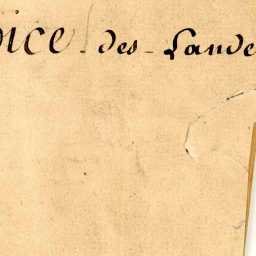 oice des Lande